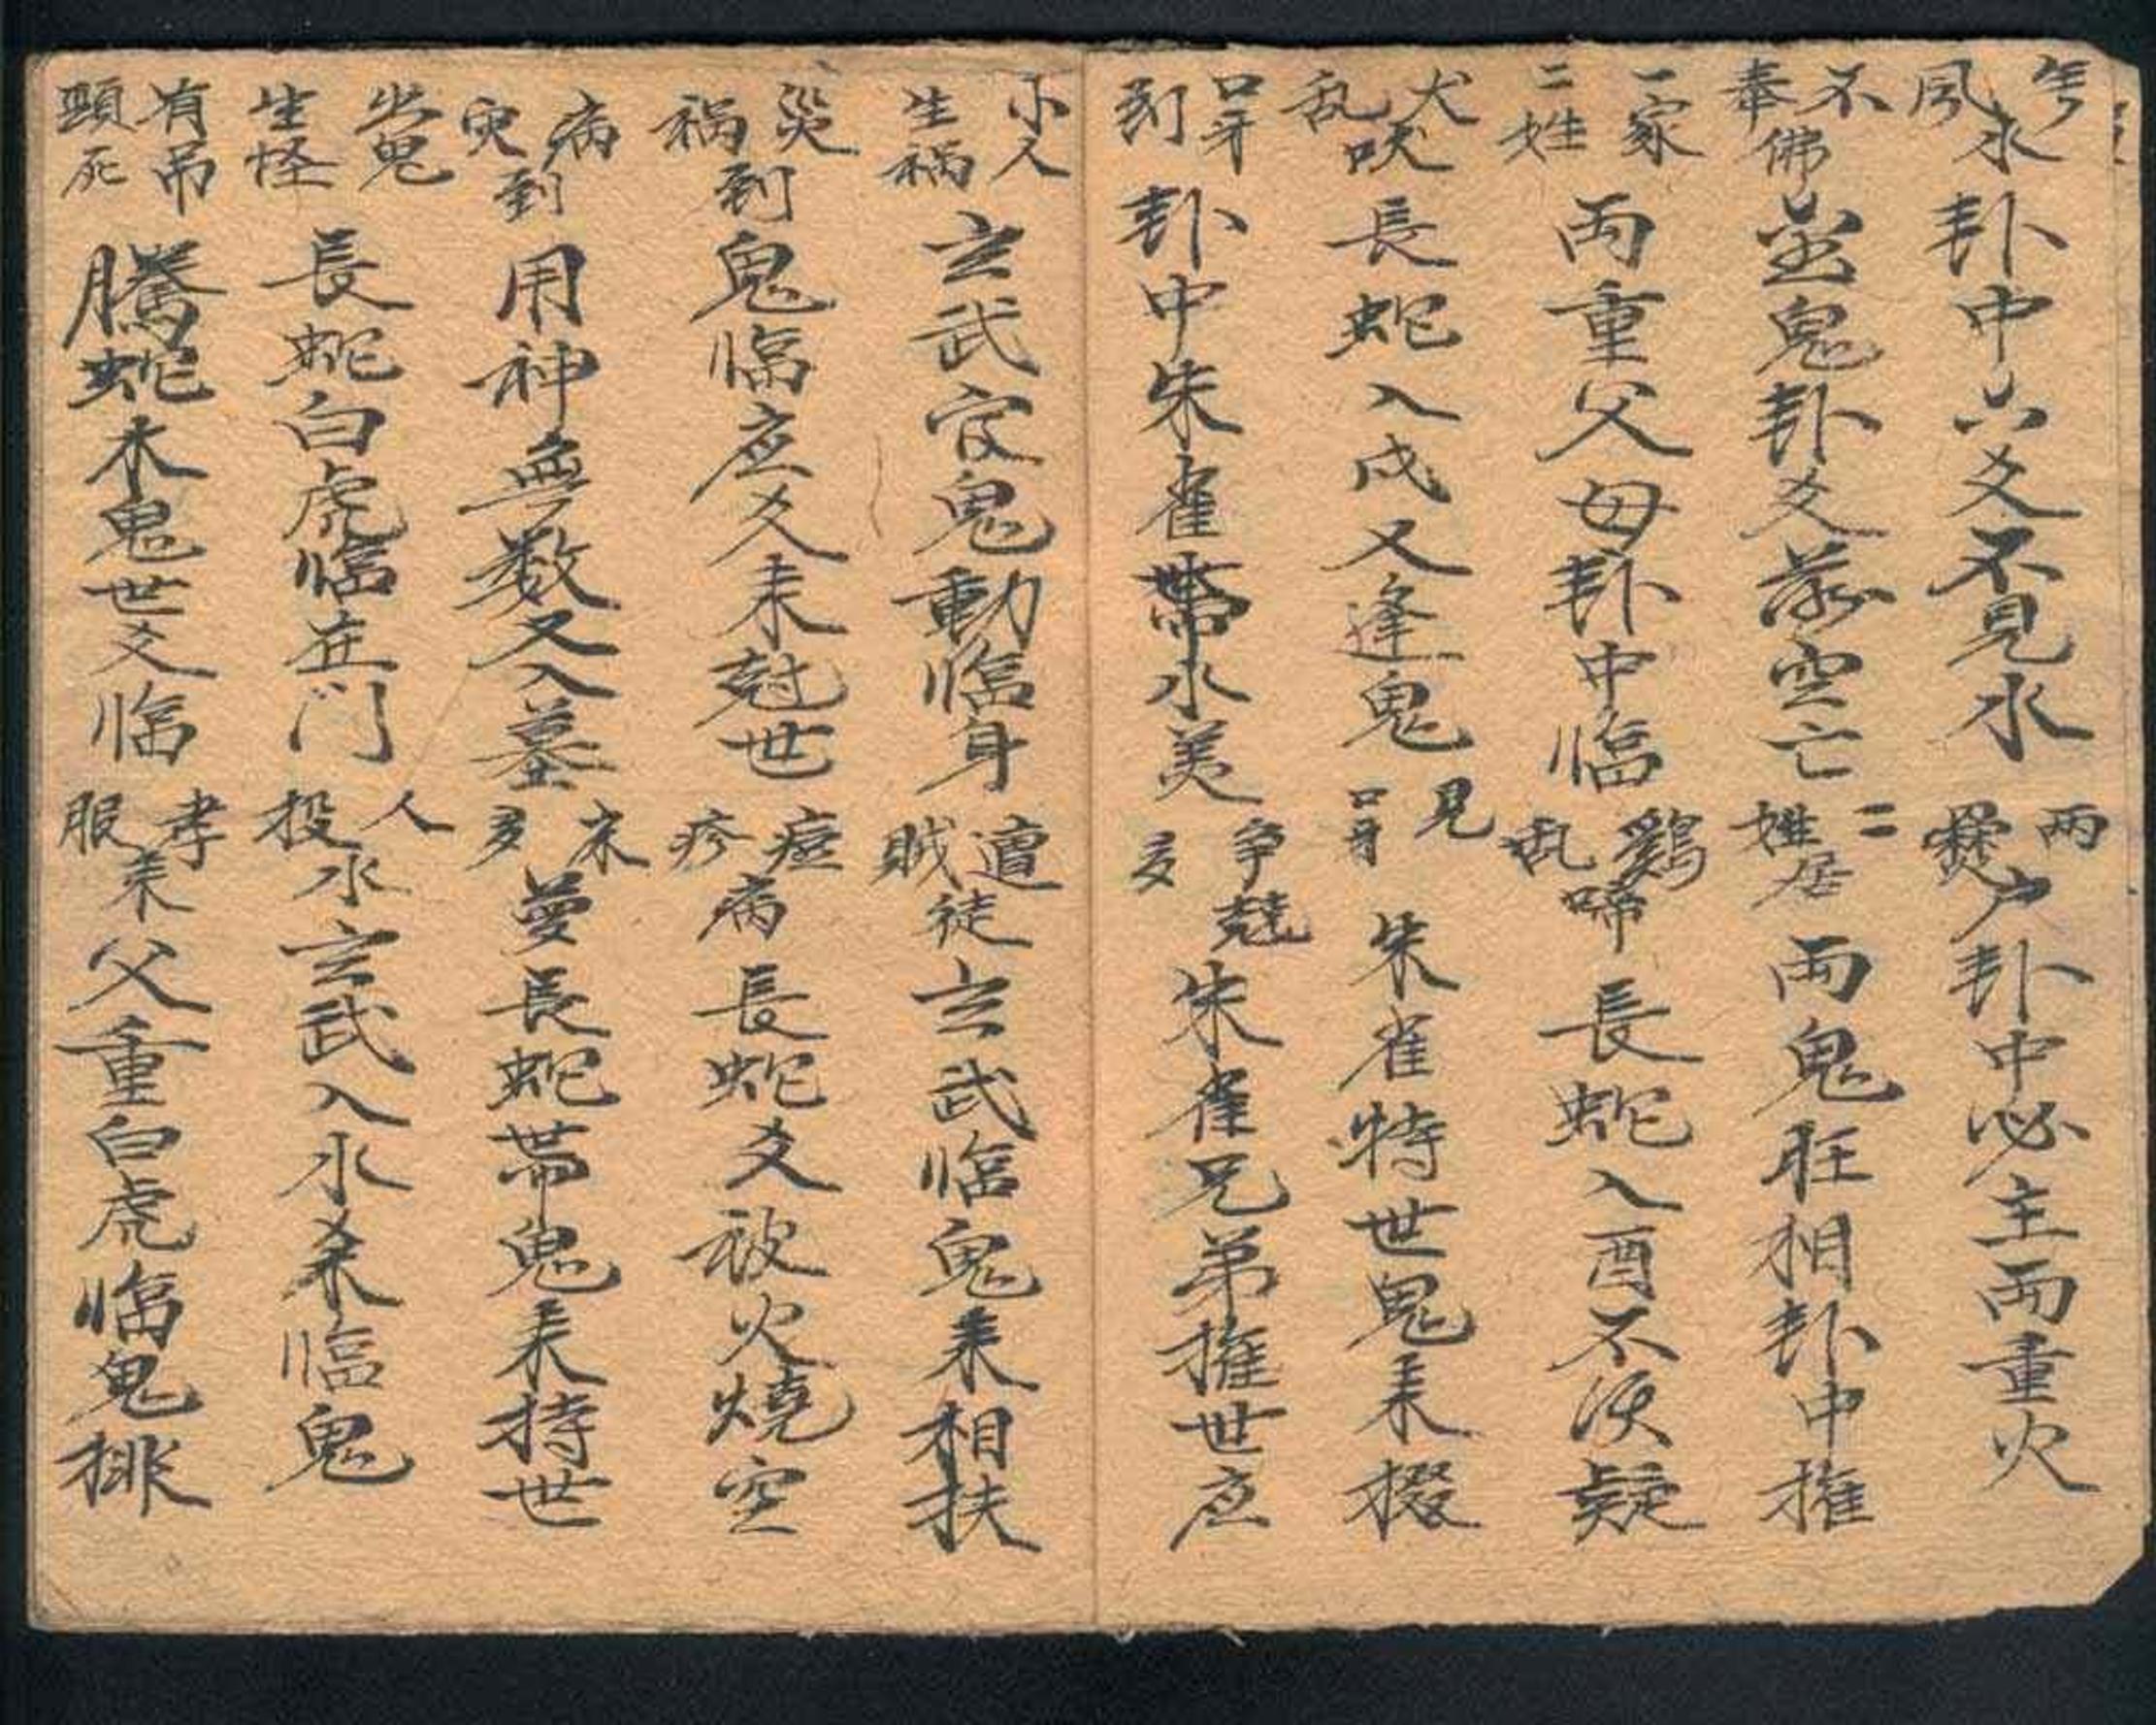 風水卦中六爻不見水 兩爨户卦中必主两重火
不奉佛金鬼卦爻落空亡 二姓居两鬼旺相卦中推
一家二姓两重父母卦中临 鷄乱啼長蛇入酉不須疑
犬乱吠長蛇入戌又逢鬼 見口牙朱雀持世鬼来掇
口牙到卦中朱雀帶水美 争競多朱雀兄弟推世应
小人生禍玄武官鬼動临身 遭賊徒玄武临鬼来相扶
災禍到鬼临应爻来尅世 痘疹病長蛇爻被火燒空
病到用神無数又入墓 来多夢長蛇带鬼来持世
出鬼生怪長蛇白虎临在门 人投水玄武入水来临鬼
有吊頸死騰蛇木鬼世爻临 孝服来父重白虎临鬼排